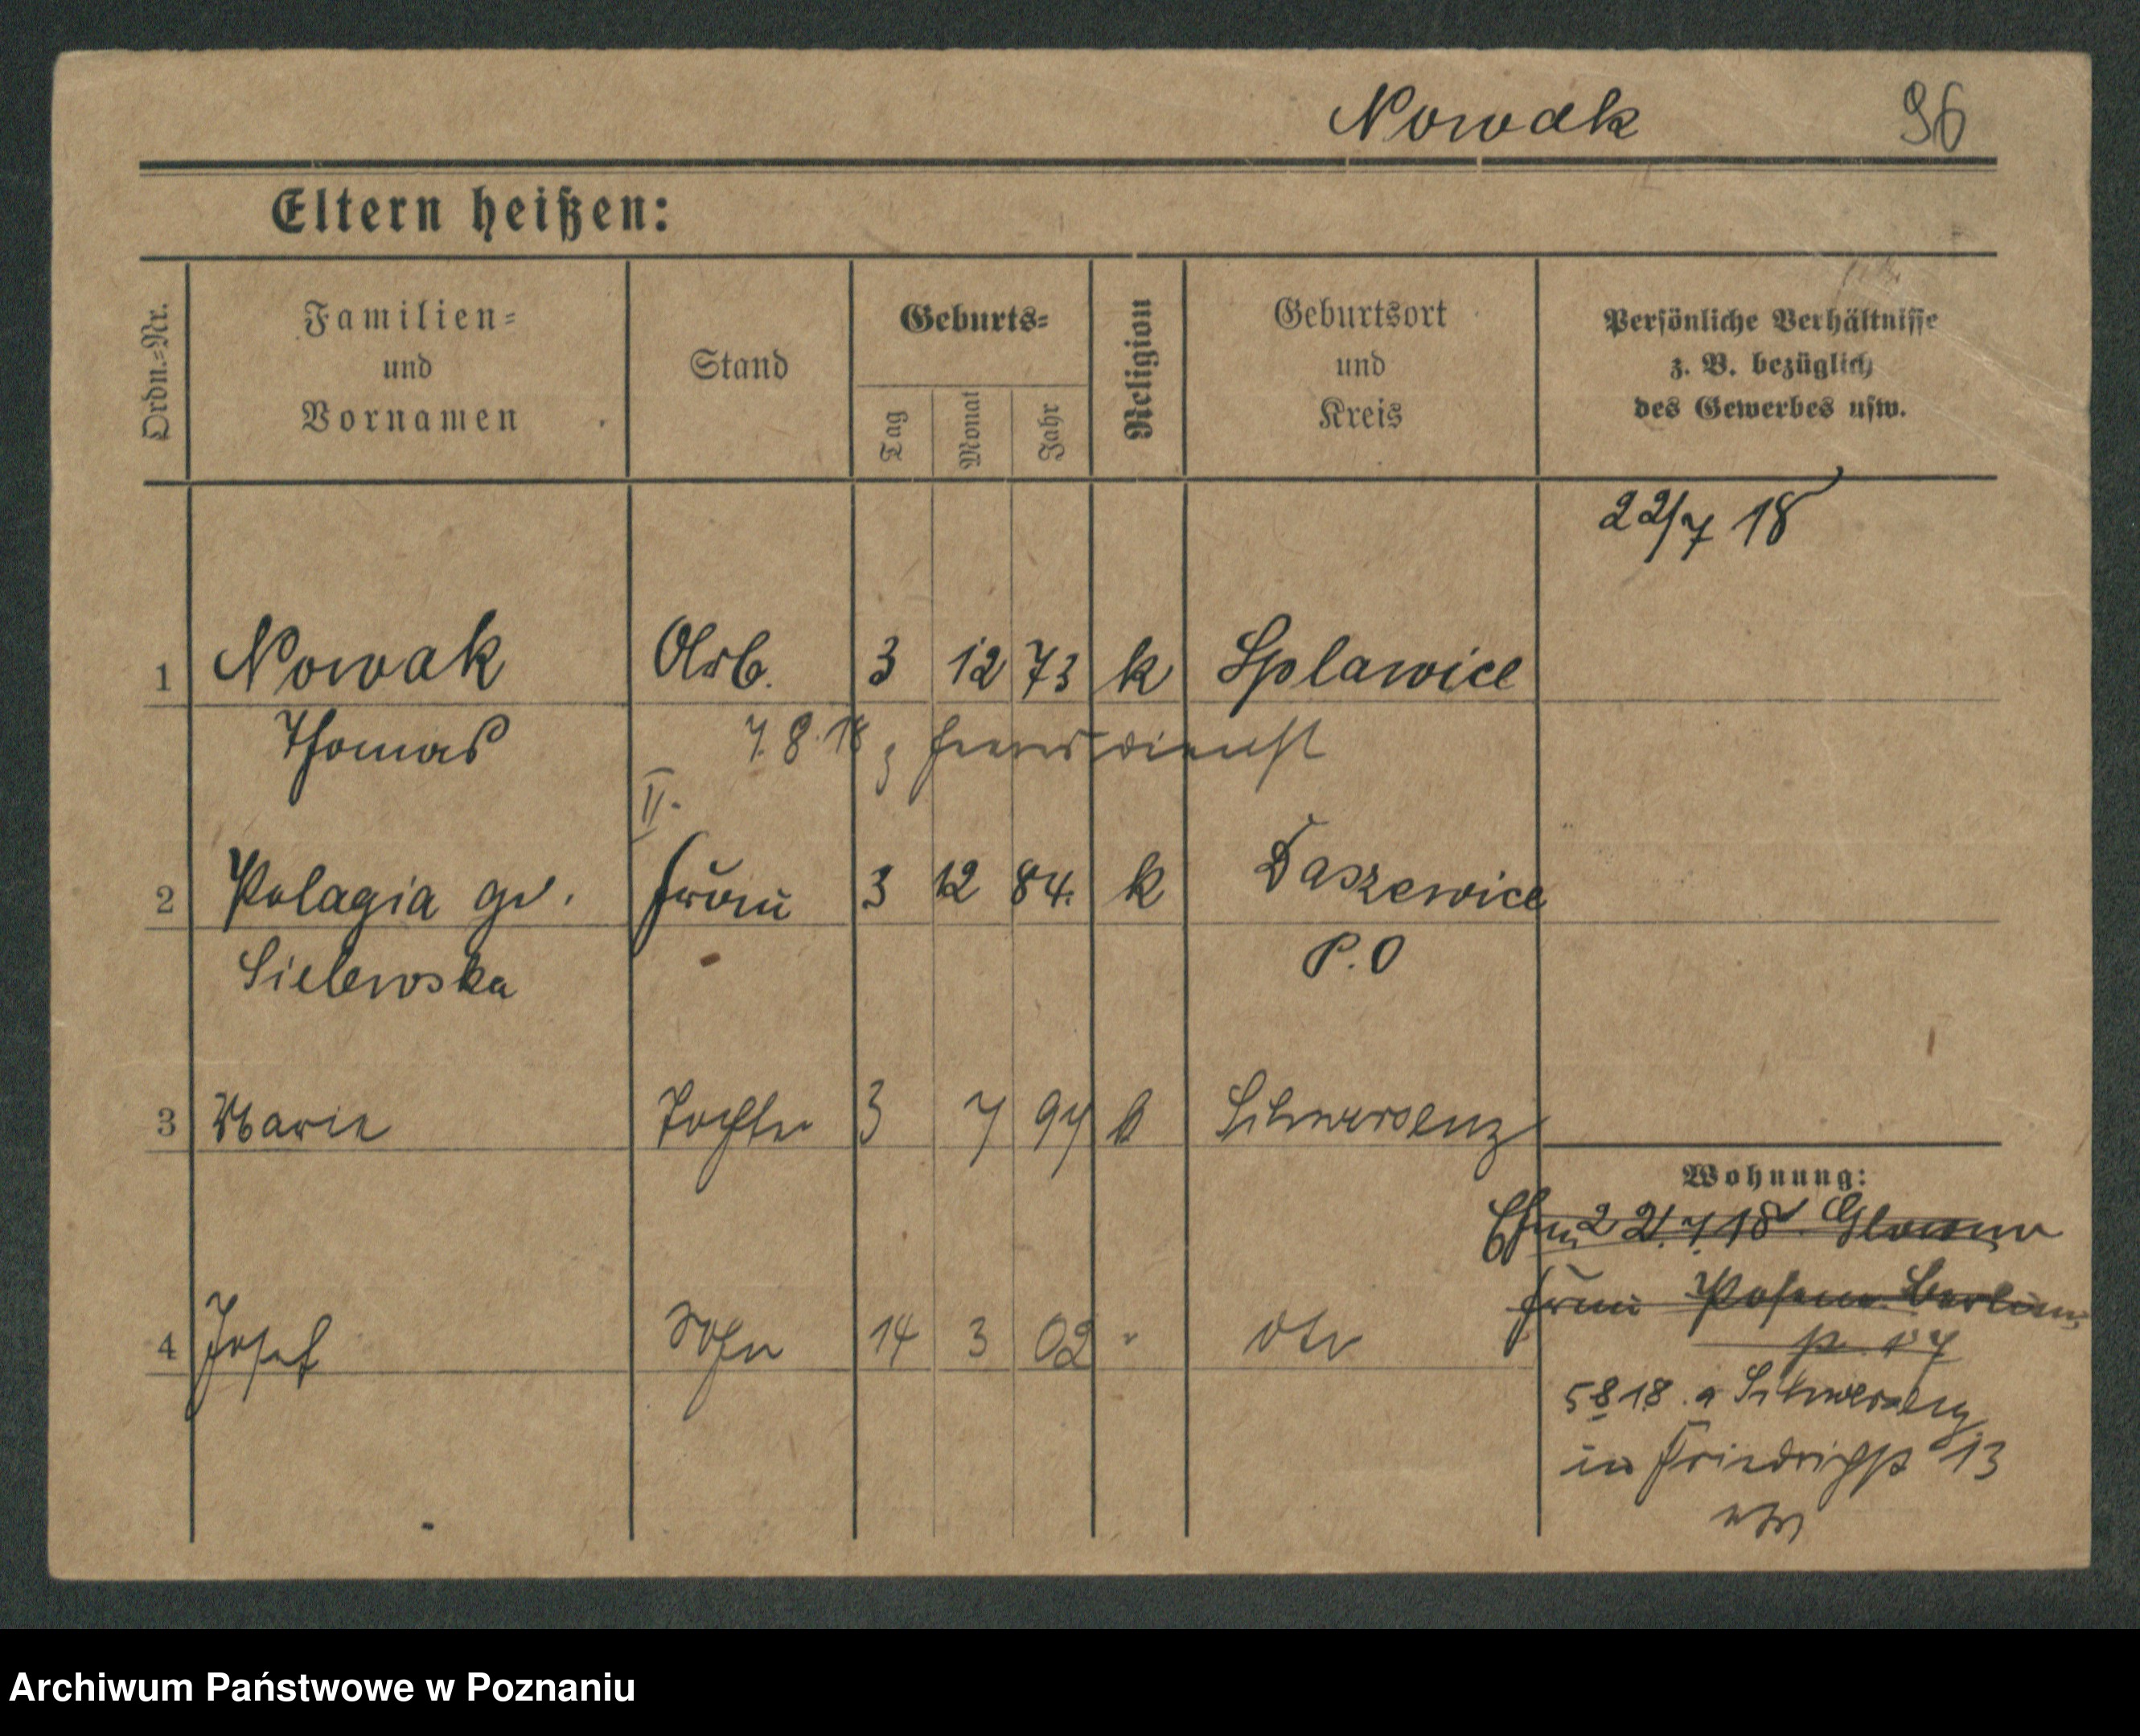 Nowak 96
Eltern heißen:
Ordn.=Nr.
Familien=
und
Vornamen
Stand
Geburts=
Tag
Monat
Jahr
Religion
Geburtsort
und
Kreis
Persönliche Verhältnisse
z. B. bezüglich
des Gewerbes usw.
22/7 18
1 Nowak Arb. 3 12 73 k Splawice
Thomas 7.8.18 z Heeresdienst
II.
2 Pelagia gb. Frau 3 12 84. k Daszewice
Sielewska P.O
3 Marie Tochter 3 7 97 k Schwersenz
Wohnung:
22.7.18. Glowno
Frau Posen Berliner
4 Josef Sohn 14 3 02 " dto
p. 17
5 8 18. a Schwersenz
in Friedrichst 13